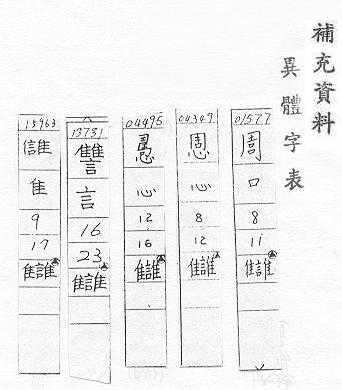 補充資料
異體字表
01577
口
8
11
讎
04349
心
8
12
讎
04495
心
12
16
讎
13731
讐
言
16
23
讎
15963
隹
9
17
讎